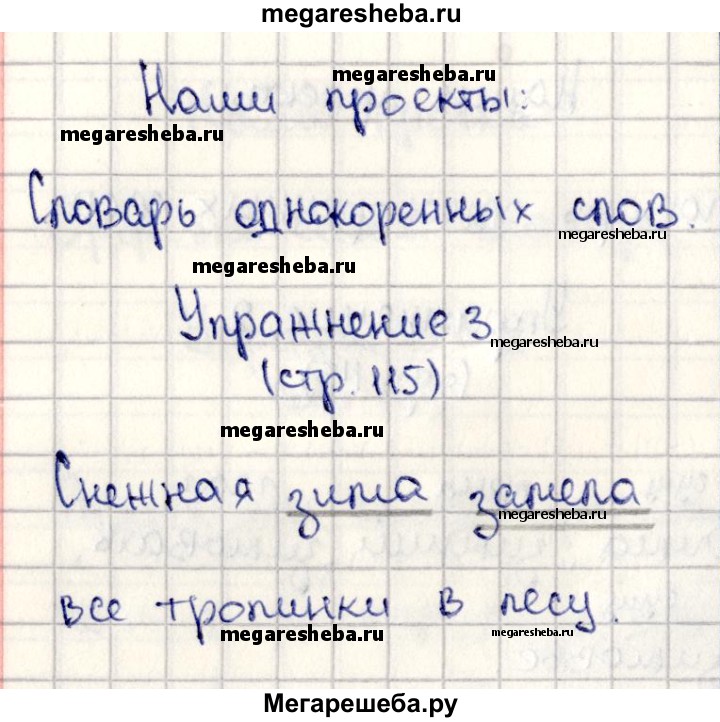 megaresheba.ru
Наши проекты:
megaresheba.ru
megaresheba.ru
Словарь однокоренных слов.
megaresheba.ru
megaresheba.ru
Упражнение 3
megaresheba.ru
(стр. 115)
megaresheba.ru
Снежная зима замела
megaresheba.ru
все тропинки в лесу.
megaresheba.ru
megaresheba.ru
Мегарешеба.ру